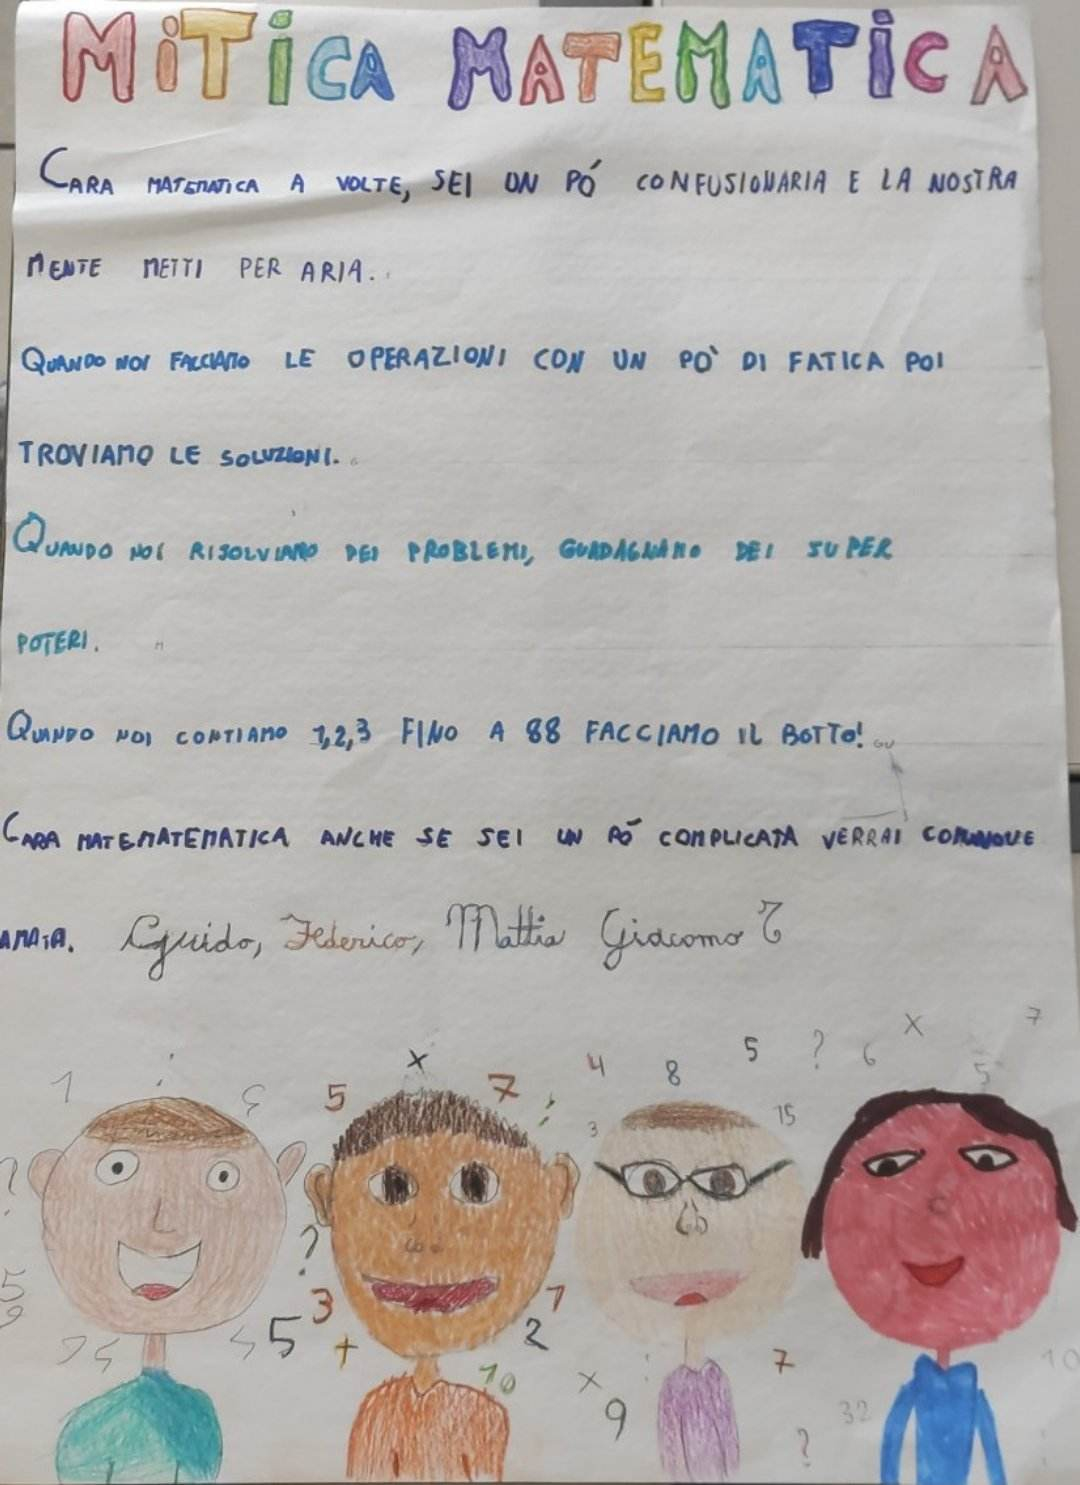 MiTiCA MATEMATiCA
CARA MATEMATICA A VOLTE, SEI UN PÓ CONFUSIONARIA E LA NOSTRA
MENTE METTI PER ARIA.
QUANDO NOI FACCIAMO LE OPERAZIONI CON UN PO' DI FATICA POI
TROVIAMO LE SOLUZIONI.
QUANDO NOI RISOLVIAMO DEI PROBLEMI, GUADAGNAMO DEI SUPER
POTERI.
QUANDO NOI CONTIAMO 1,2,3 FINO A 88 FACCIAMO IL BOTTO!
CARA MATEMATEMATICA ANCHE SE SEI UN PÓ COMPLICATA VERRAI COMUNQUE
AMATA. Guido, Federico, Mattia Giacomo T
5 x 7 4 8 5 ? 6 x 7
1 3 15 5
? 3 5 + 1 2 10
x 9 7 ? 32 10